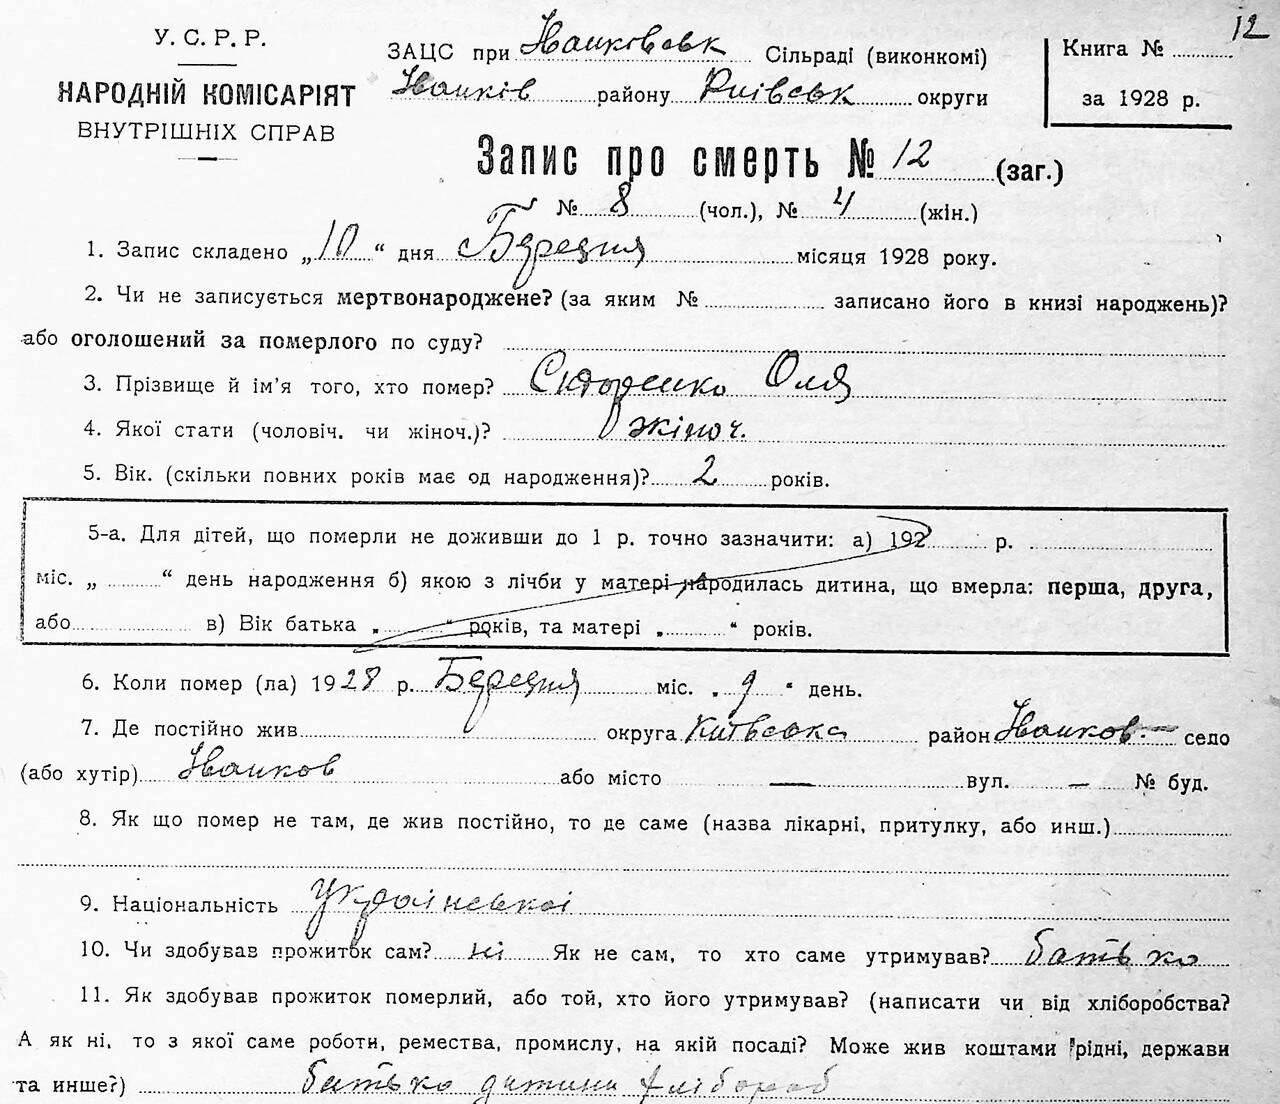 12
У. С. Р. Р.
НАРОДНІЙ КОМІСАРІЯТ
ВНУТРІШНІХ СПРАВ
ЗАЦС при Іванковськ Сільраді (виконкомі)
Іванків району Київськ округи
Книга №
за 1928 р.
Запис про смерть № 12 (заг.)
№ 8 (чол.), № 4 (жін.)
1. Запис складено „10“ дня Березня місяця 1928 року.
2. Чи не записується мертвонароджене? (за яким № записано його в книзі народжень)?
або оголошений за померлого по суду?
3. Прізвище й ім'я того, хто помер? Оля
4. Якої стати (чоловіч. чи жіноч.)? жіноч.
5. Вік. (скільки повних років має од народження)? 2 років.
5-а. Для дітей, що померли не доживши до 1 р. точно зазначити: а) 192 р.
міс. „ “ день народження б) якою з лічби у матері народилась дитина, що вмерла: перша, друга,
або в) Вік батька „ “ років, та матері „ “ років.
6. Коли помер (ла) 1928 р. Березня міс. „9“ день.
7. Де постійно жив округа Київська район Іванков. — село
(або хутір) Іванков або місто — вул. — № буд.
8. Як що помер не там, де жив постійно, то де саме (назва лікарні, притулку, або инш.)
9. Національність Української
10. Чи здобував прожиток сам? ні Як не сам, то хто саме утримував? батько
11. Як здобував прожиток померлий, або той, хто його утримував? (написати чи від хліборобства?
А як ні, то з якої саме роботи, ремества, промислу, на якій посаді? Може жив коштами рідні, держави
та инше?) батько дитини хлібороб